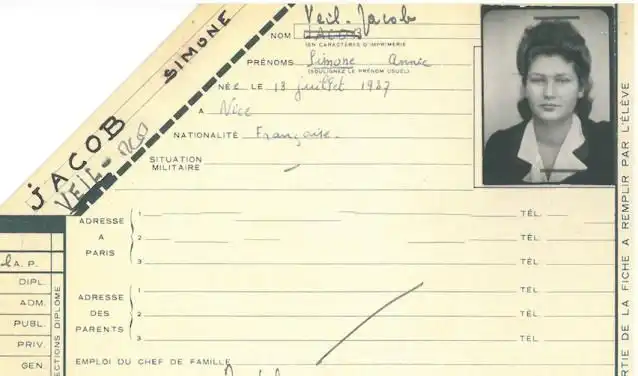 JACOB SIMONE
VEIL-
Veil-Jacob
NOM JACOB
(EN CARACTÈRES D'IMPRIMERIE
PRÉNOMS Simone Annie
(SOULIGNEZ LE PRÉNOM USUEL)
NÉE LE 13 juillet 1927
A Nice
NATIONALITÉ Française.
SITUATION
MILITAIRE
ADRESSE
A
PARIS
1 TÉL.
2 TÉL.
3 TÉL.
ADRESSE
DES
PARENTS
1 TÉL.
2 TÉL.
3 TÉL.
EMPLOI DU CHEF DE FAMILLE
A. P.
DIPL.
ADM.
PUBL.
PRIV.
GEN.
ECTIONS DIPLOME
RTIE DE LA FICHE A REMPLIR PAR L'ÉLÈVE